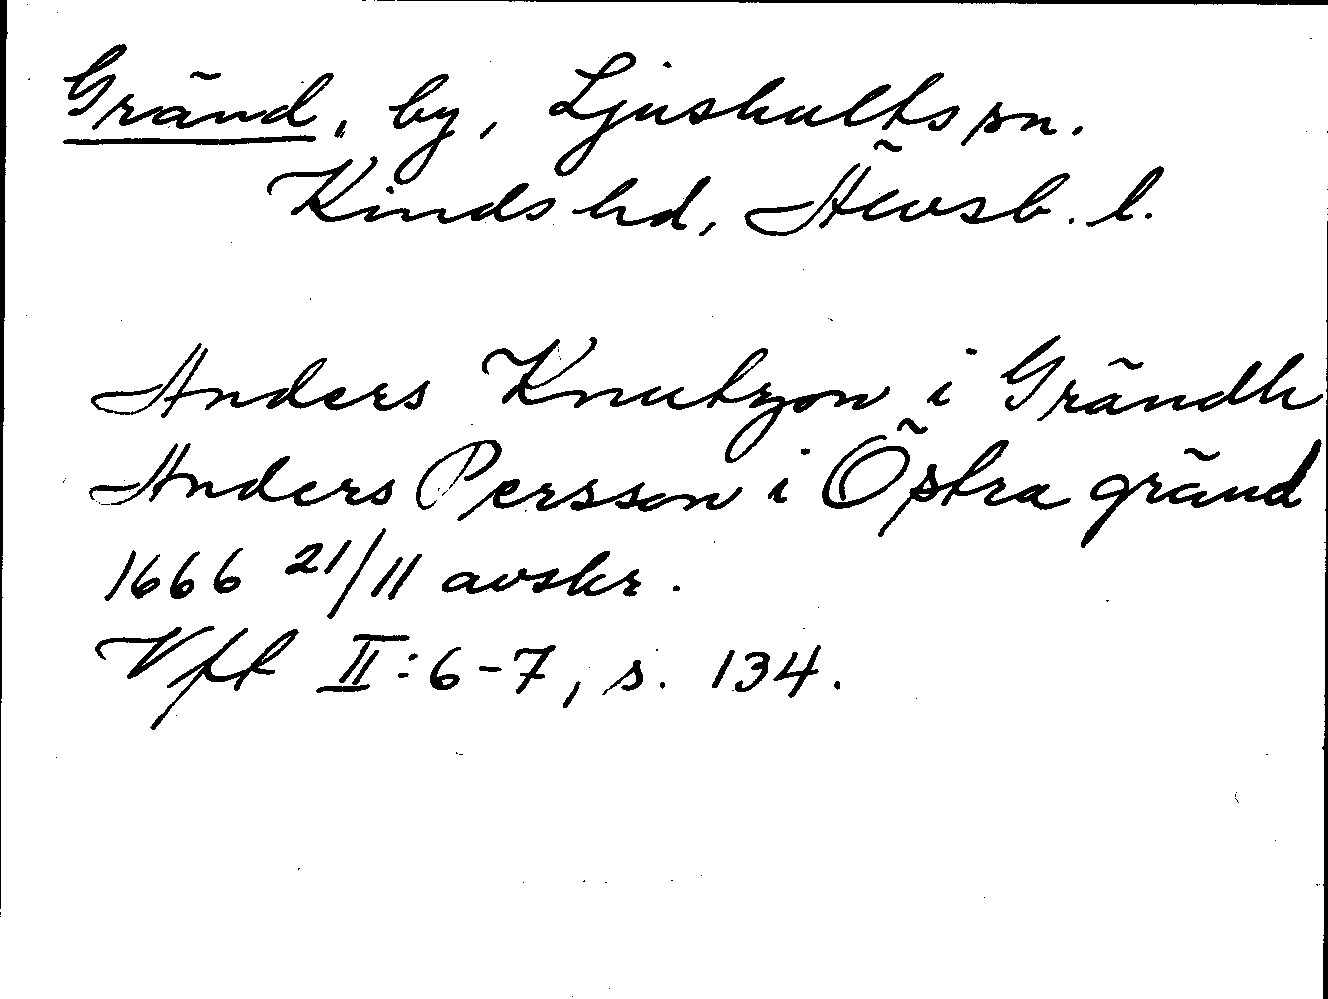 Gränd, by, Ljushults sn.
Kinds hd, Älvsb. l.
Anders Knutzon i Grändh
Anders Persson i Öptra gränd
1666 21/11 avskr.
Vft II:6-7, s. 134.